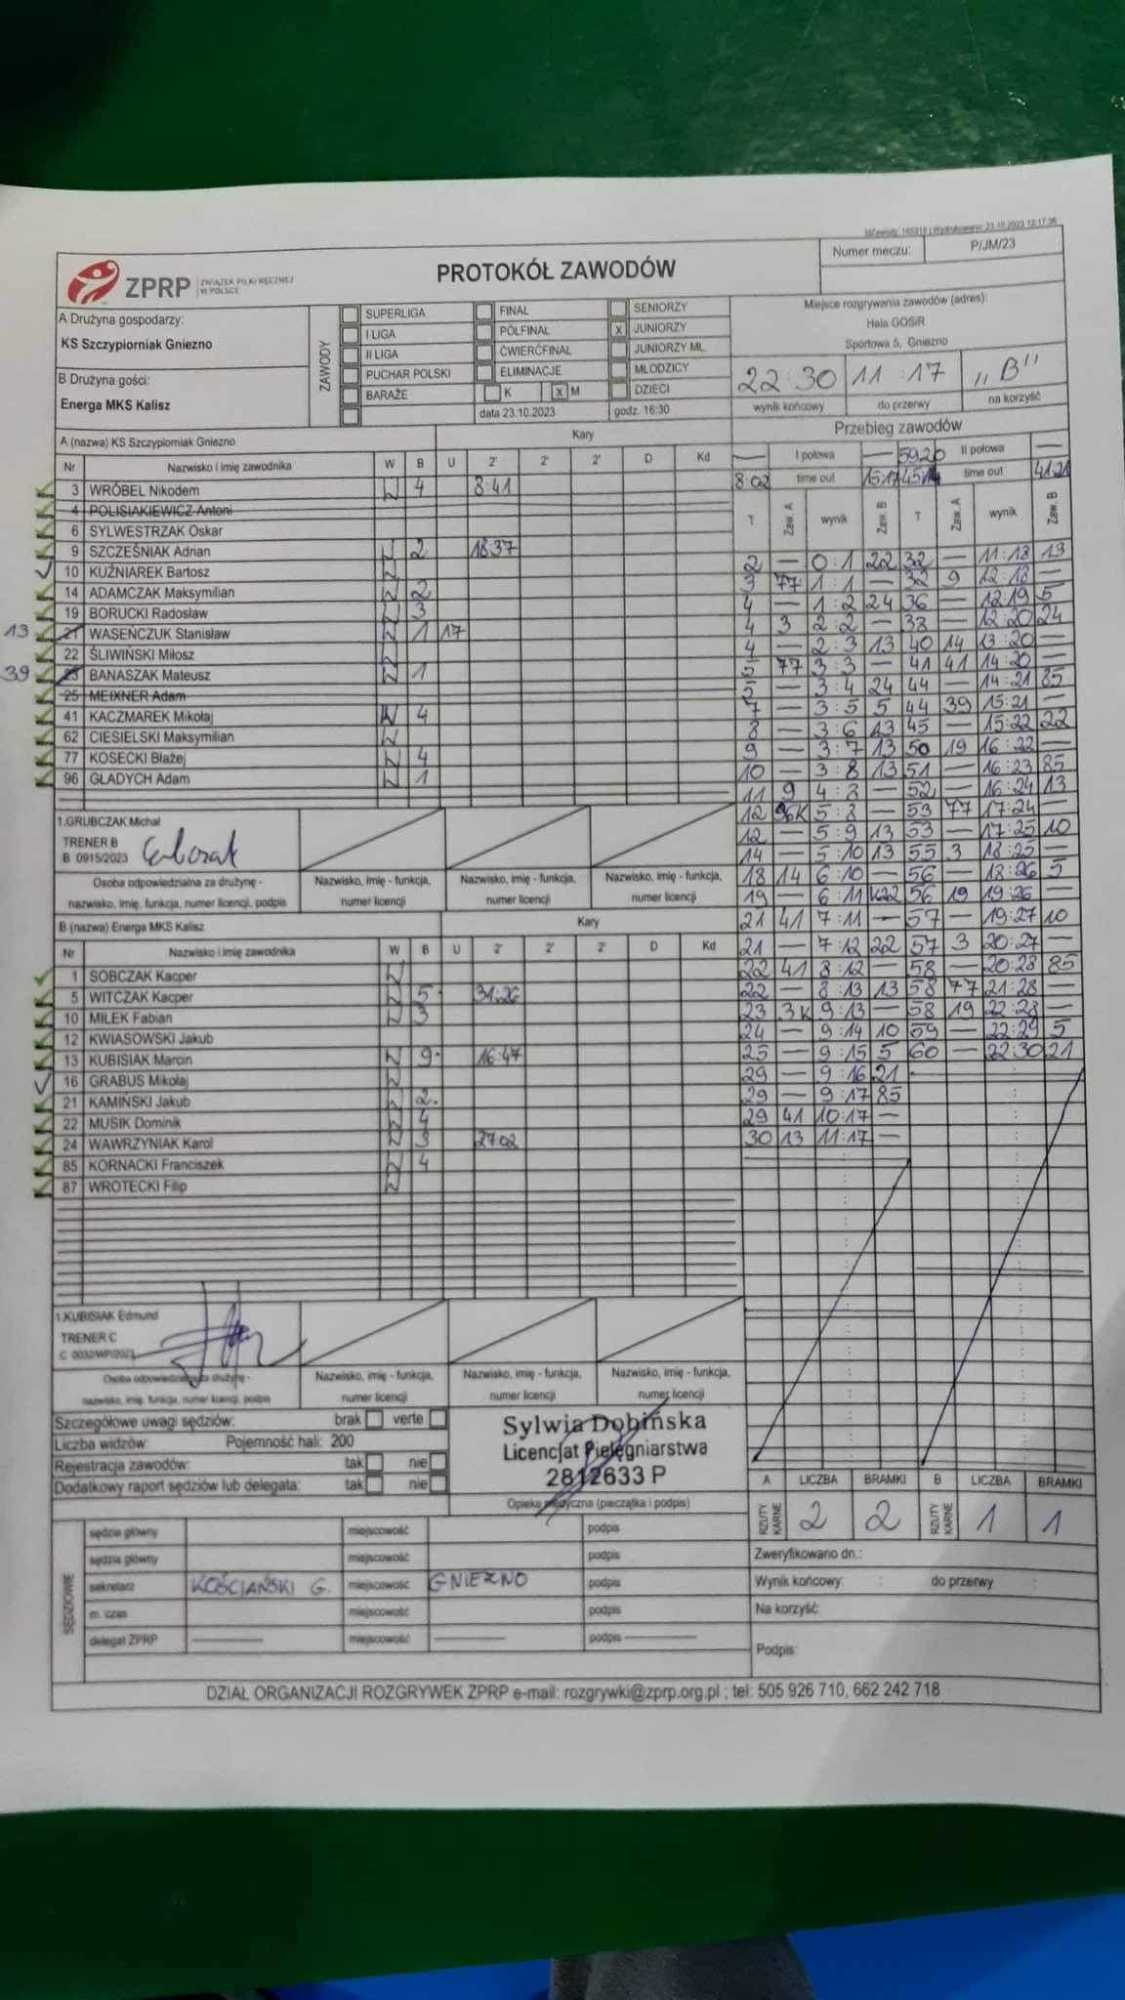 Numer meczu: P/JM/23
ZPRP ZWIĄZEK PIŁKI RĘCZNEJ W POLSCE
PROTOKÓŁ ZAWODÓW
A Drużyna gospodarzy:
KS Szczypiorniak Gniezno
B Drużyna gości:
Energa MKS Kalisz
ZAWODY
SUPERLIGA FINAŁ SENIORZY
I LIGA PÓŁFINAŁ x JUNIORZY
II LIGA ĆWIERĆFINAŁ JUNIORZY MŁ.
PUCHAR POLSKI ELIMINACJE MŁODZICY
BARAŻE K x M DZIECI
data 23.10.2023 godz. 16:30
Miejsce rozgrywania zawodów (adres):
Hala GOSiR
Sportowa 5, Gniezno
22:30 11:17 „B"
wynik końcowy do przerwy na korzyść
A (nazwa) KS Szczypiorniak Gniezno Kary
Nr Nazwisko i imię zawodnika W B U 2' 2' 2' D Kd
3 WRÓBEL Nikodem W 4 8:41
4 POLISIAKIEWICZ Antoni
6 SYLWESTRZAK Oskar
9 SZCZEŚNIAK Adrian W 2 18:37
10 KUŹNIAREK Bartosz W
14 ADAMCZAK Maksymilian W 2
19 BORUCKI Radosław W 3
13 21 WASEŃCZUK Stanisław W 1 17
22 ŚLIWIŃSKI Miłosz W
39 23 BANASZAK Mateusz W 1
25 MEIXNER Adam
41 KACZMAREK Mikołaj W 4
62 CIESIELSKI Maksymilian W
77 KOSECKI Błażej W 4
96 GŁADYCH Adam W 1
1.GRUBCZAK Michał
TRENER B
B 0915/2023
Osoba odpowiedzialna za drużynę - nazwisko, imię, funkcja, numer licencji, podpis
Nazwisko, imię - funkcja, numer licencji
Nazwisko, imię - funkcja, numer licencji
Nazwisko, imię - funkcja, numer licencji
B (nazwa) Energa MKS Kalisz Kary
Nr Nazwisko i imię zawodnika W B U 2' 2' 2' D Kd
1 SOBCZAK Kacper W
5 WITCZAK Kacper W 5 31:26
10 MILEK Fabian W 3
12 KWIASOWSKI Jakub
13 KUBISIAK Marcin W 9 16:47
16 GRABUS Mikołaj W
21 KAMIŃSKI Jakub W 2
22 MUSIK Dominik W 4
24 WAWRZYNIAK Karol W 3 27:02
85 KORNACKI Franciszek W 4
87 WROTECKI Filip W
1.KUBISIAK Edmund
TRENER C
Osoba odpowiedzialna za drużynę - nazwisko, imię, funkcja, numer licencji, podpis
Nazwisko, imię - funkcja, numer licencji
Nazwisko, imię - funkcja, numer licencji
Nazwisko, imię - funkcja, numer licencji
Przebieg zawodów
— I połowa — 59:26 II połowa —
8:02 time out 15:17 45:14 time out 41:21
T Zaw. A wynik Zaw. B T Zaw. A wynik Zaw. B
2 — 0:1 22 32 — 11:18 13
3 77 1:1 — 32 9 12:18 —
4 — 1:2 24 36 — 12:19 5
4 3 2:2 — 38 — 12:20 24
4 — 2:3 13 40 14 13:20 —
5 77 3:3 — 41 41 14:20 —
5 — 3:4 24 44 — 14:21 85
7 — 3:5 5 44 39 15:21 —
8 — 3:6 13 45 — 15:22 22
9 — 3:7 13 50 19 16:22 —
10 — 3:8 13 51 — 16:23 85
11 9 4:8 — 52 — 16:24 13
12 96K 5:8 — 53 77 17:24 —
12 — 5:9 13 53 — 17:25 10
14 — 5:10 13 55 3 18:25 —
18 14 6:10 — 56 — 18:26 5
19 — 6:11 K22 56 19 19:26 —
21 41 7:11 — 57 — 19:27 10
21 — 7:12 22 57 3 20:27 —
22 41 8:12 — 58 — 20:28 85
22 — 8:13 13 58 77 21:28 —
23 3K 9:13 — 58 19 22:28 —
24 — 9:14 10 59 — 22:29 5
25 — 9:15 5 60 — 22:30 21
29 — 9:16 21
29 — 9:17 85
29 41 10:17 —
30 13 11:17 —
Szczegółowe uwagi sędziów: brak verte
Liczba widzów: Pojemność hali: 200
Rejestracja zawodów: tak nie
Dodatkowy raport sędziów lub delegata: tak nie
Sylwia Dobińska
Licencjat Pielęgniarstwa
2812633 P
Opieka medyczna (pieczątka i podpis)
A LICZBA BRAMKI B LICZBA BRAMKI
RZUTY KARNE 2 2 RZUTY KARNE 1 1
SĘDZIOWIE
sędzia główny miejscowość podpis
sędzia główny miejscowość podpis
sekretarz KOŚCIAŃSKI G. miejscowość GNIEZNO podpis
m. czas miejscowość podpis
delegat ZPRP miejscowość podpis
Zweryfikowano dn.:
Wynik końcowy: : do przerwy :
Na korzyść:
Podpis:
DZIAŁ ORGANIZACJI ROZGRYWEK ZPRP e-mail: rozgrywki@zprp.org.pl ; tel: 505 926 710, 662 242 718